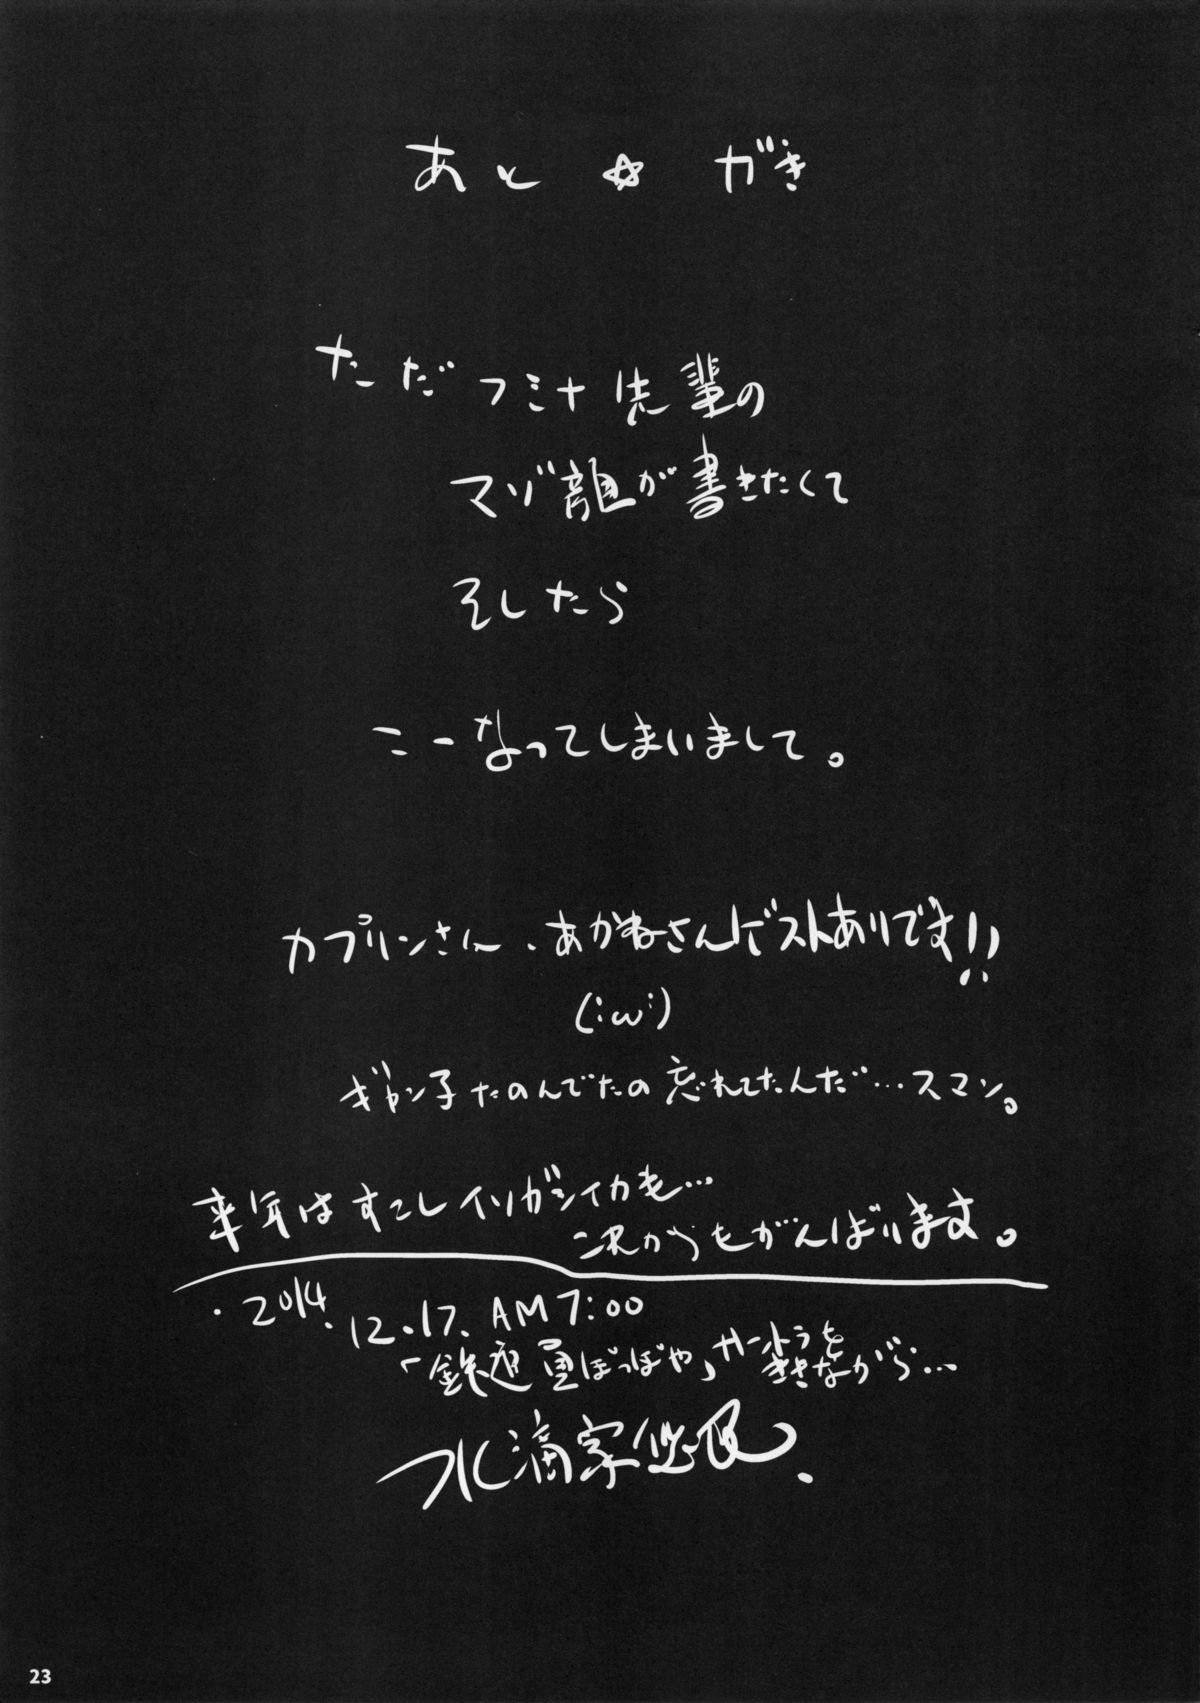 あと☆がき
ただフミナ先輩の
マゾ顔が書きたくて
そしたら
こーなってしまいまして。
カプリンさん、あかねさんゲストありです!!
(:ω:)
ギャン子たのんでたの忘れてたんだ…スマン。
来年はすこしイソガシイカも…
これからもがんばります。
・2014.12.17. AM7:00
「鉄道員ぽっぽや」サントラを
ききながら…
水滴家悠民.
23